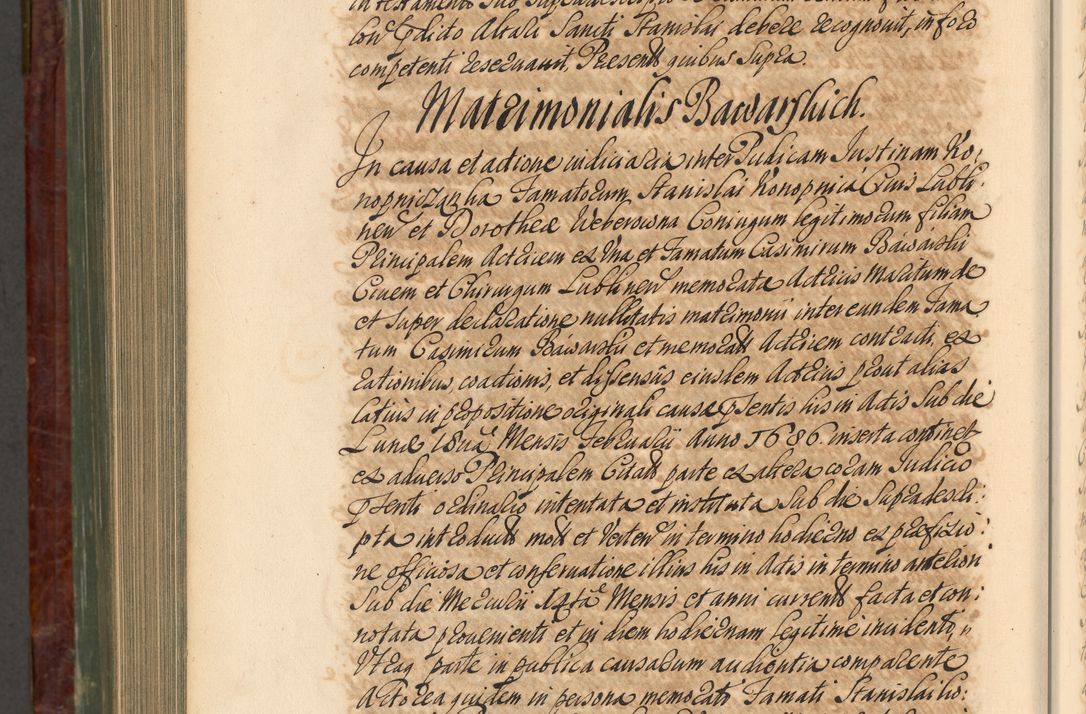 bow̃ prædicto Altari Sancti Stanislai debere recognovit, in foro
competenti reservavit, Præsentt. quibus supra.
Matrimonialis Bawarskich.
In causa et actione iudiciaria inter Pudicam Justinam Ko:
nopniczanka Famatorum Stanislai Konopnica Civis Lubli:
neñ et Dorotheæ Weberowna Coniugum legitimorum filiam
Principalem Actricem ex Una et Famatum Casimirum Bawarski
Civem et Chirurgum Lublineñ memorata Actricis Maritum de
et super declaratione nullitatis matrimonii inter eundem Fama
tum Casimirum Bawarski et memoratt Actricem contracti, ex
rationibus coactionis, et dissensus eiusdem Actricis prout alias
latius in propositione originali causæ pñtis his in Actis sub die
Lunæ 18va Mensis Februarii Anno 1686. inserta continet
ex adverso Principalem Citatt parte ex altera coram Iudicio
pñti ordinario intentata et instituta sub die supradescri:
pta introductt mott et verteñ in termino hodierno ex præfixio:
ne officiosa et conservatione illius his in Actis in termino anteriori
sub die Mercurii 14ta Mensis et anni currentt facta et con:
notata provenienti et in diem hodiernam legitime incidenti,
Utraq parte in publica causarum audientia comparente
Actorea quidem in persona memorati Famati Stanislai Ko: